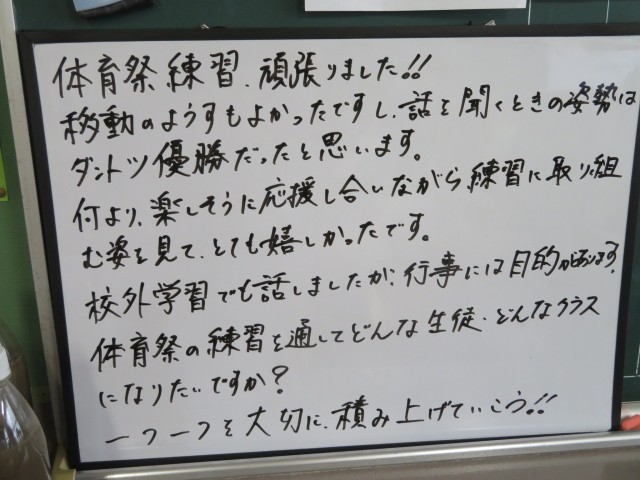 体育祭練習、頑張りました!!
移動のようすもよかったですし、話を聞くときの姿勢は
ダントツ優勝だったと思います。
何より、楽しそうに応援し合いながら練習に取り組
む姿を見て、とても嬉しかったです。
校外学習でも話しましたが、行事には目的があります。
体育祭の練習を通してどんな生徒、どんなクラス
になりたいですか?
一つ一つを大切に、積み上げていこう!!